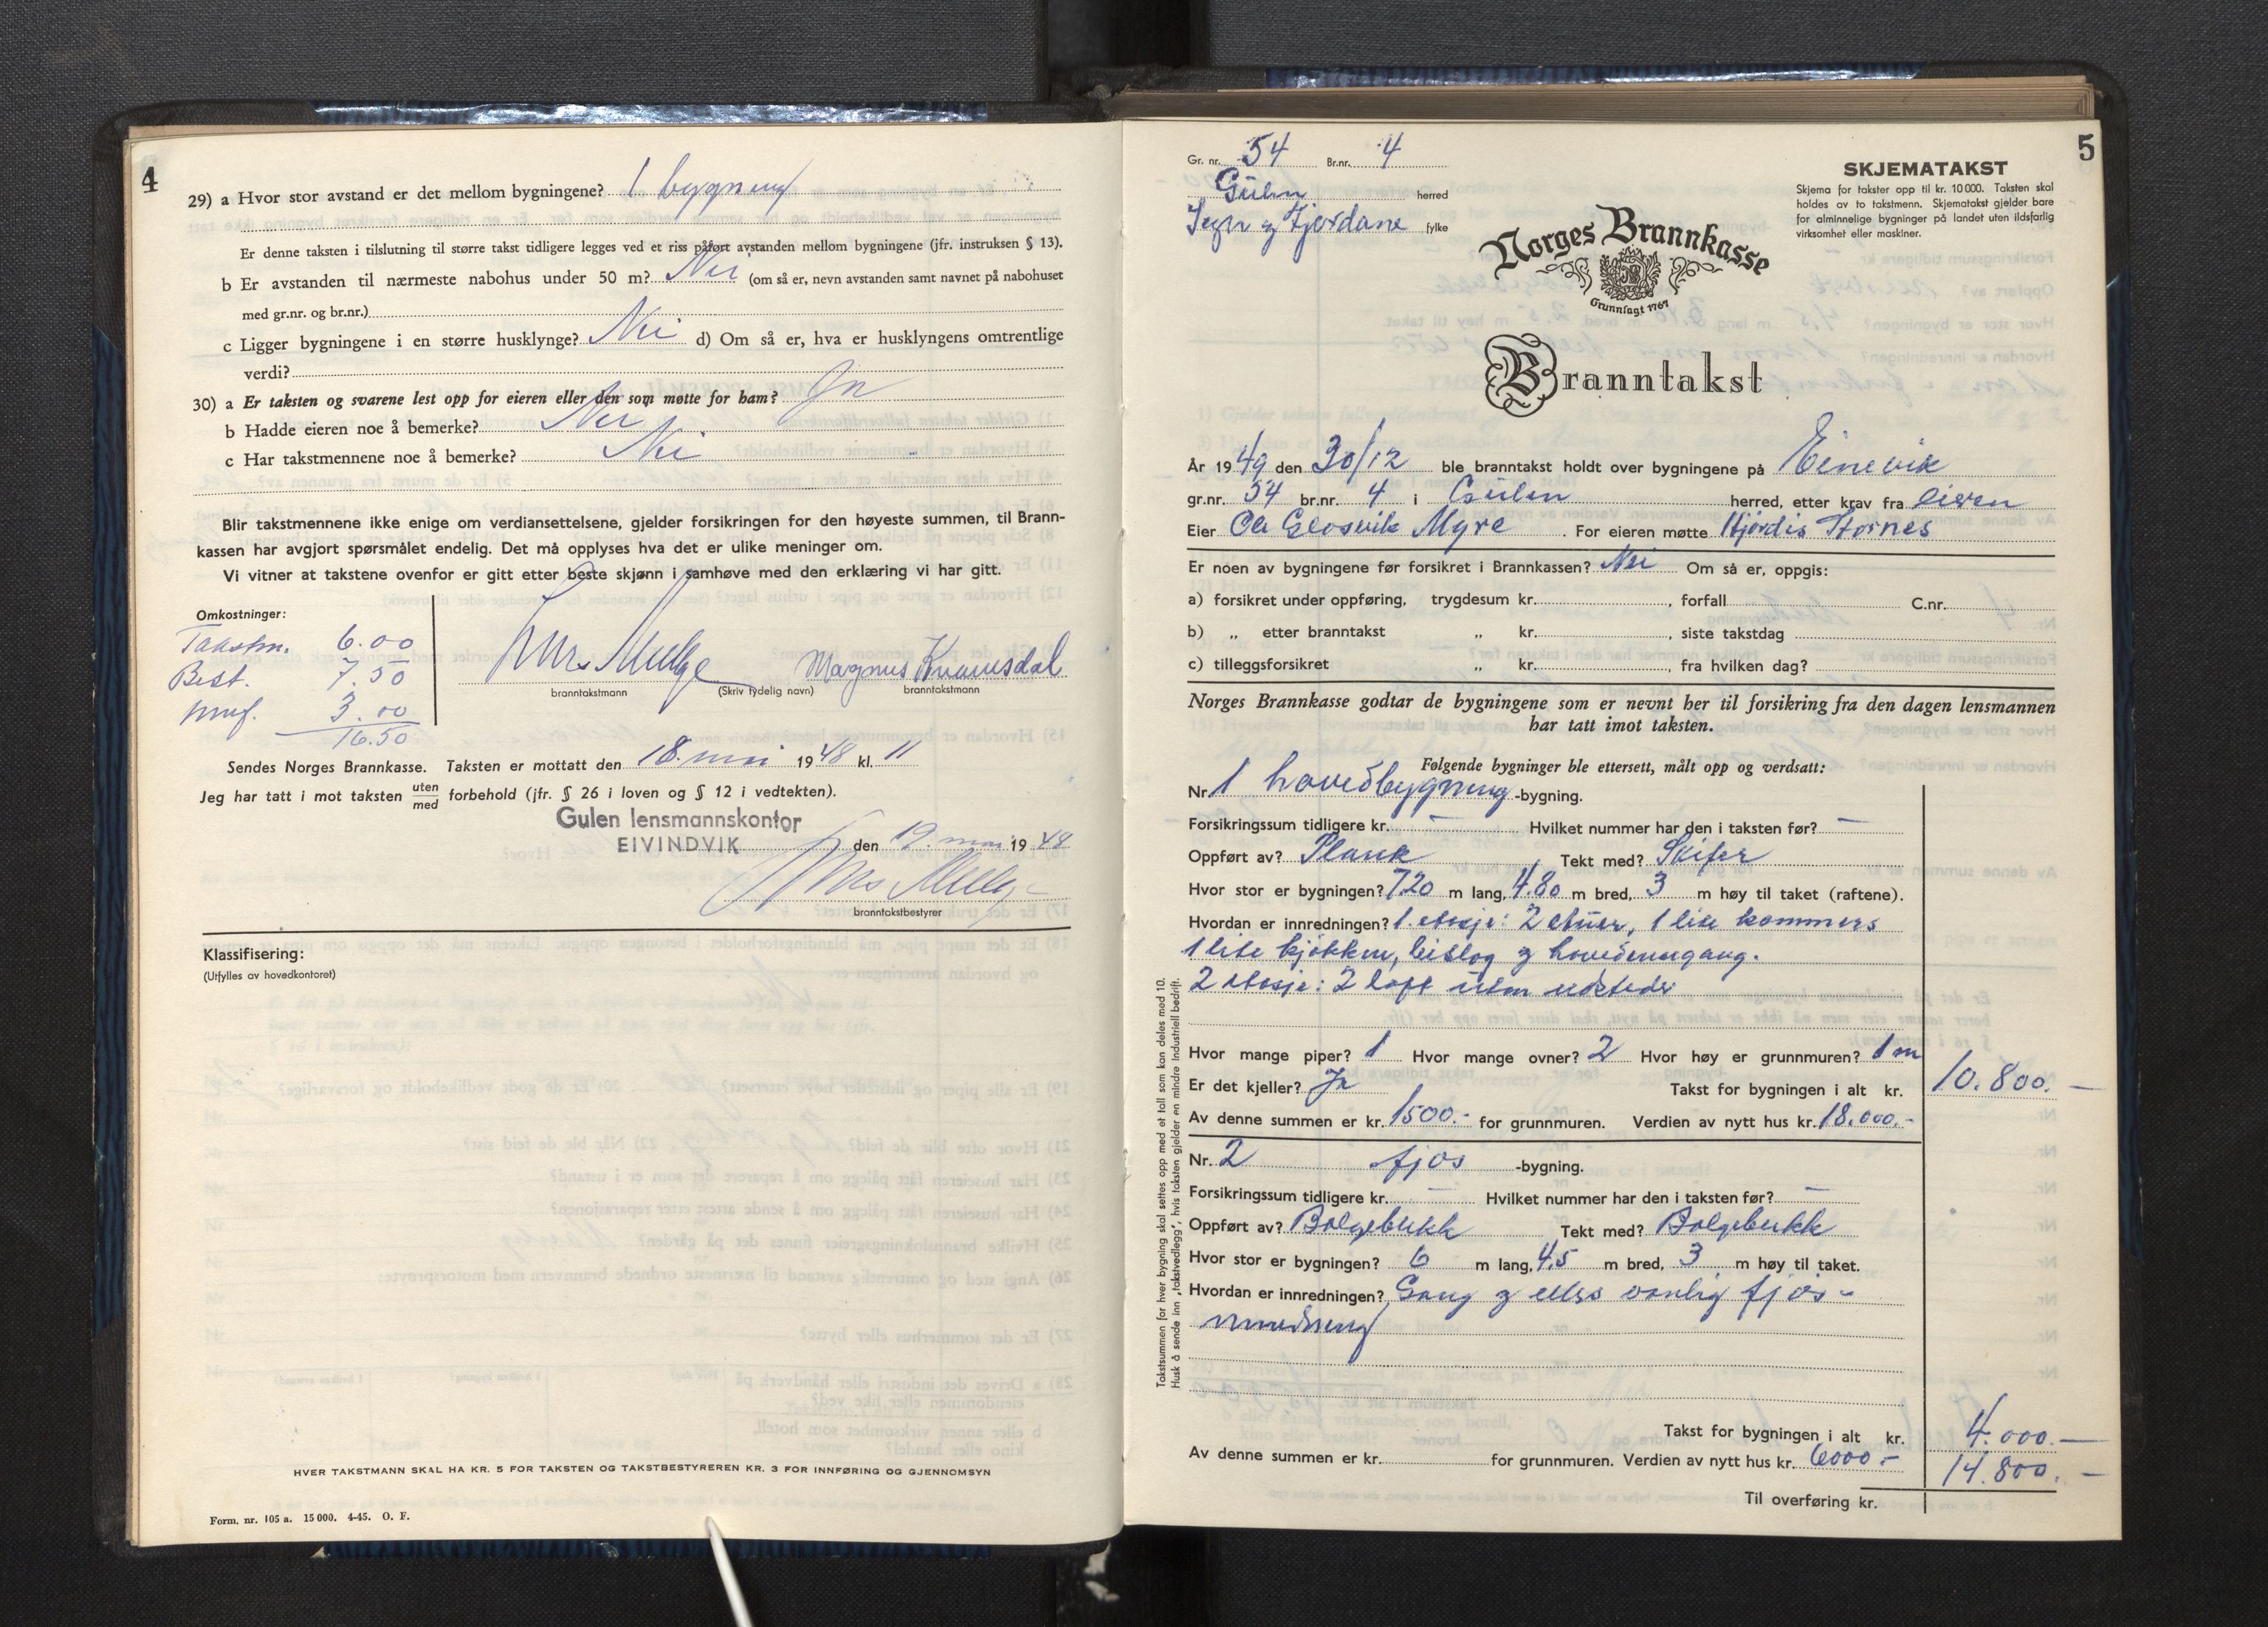 4
29) a Hvor stor avstand er det mellom bygningene? 1 bygning
Er denne taksten i tilslutning til større takst tidligere legges ved et riss påført avstanden mellom bygningene (jfr. instruksen § 13).
b Er avstanden til nærmeste nabohus under 50 m? Nei (om så er, nevn avstanden samt navnet på nabohuset
med gr.nr. og br.nr.)
c Ligger bygningene i en større husklynge? Nei d) Om så er, hva er husklyngens omtrentlige
verdi?
30) a Er taksten og svarene lest opp for eieren eller den som møtte for ham? Ja
b Hadde eieren noe å bemerke? Nei
c Har takstmennene noe å bemerke? Nei
Blir takstmennene ikke enige om verdiansettelsene, gjelder forsikringen for den høyeste summen, til Brann-
kassen har avgjort spørsmålet endelig. Det må opplyses hva det er ulike meninger om.
Vi vitner at takstene ovenfor er gitt etter beste skjønn i samhøve med den erklæring vi har gitt.
Omkostninger:
Takstm. 6.00
Best. 7.50
3.00
16.50
Magnus
branntakstmann (Skriv tydelig navn) branntakstmann
Sendes Norges Brannkasse. Taksten er mottatt den 18. mai 1948 kl. 11
Jeg har tatt i mot taksten uten/med forbehold (jfr. § 26 i loven og § 12 i vedtekten).
Gulen lensmannskontor
EIVINDVIK den 19. mai 1948
branntakstbestyrer
Klassifisering:
(Utfylles av hovedkontoret)
HVER TAKSTMANN SKAL HA KR. 5 FOR TAKSTEN OG TAKSTBESTYREREN KR. 3 FOR INNFØRING OG GJENNOMSYN
Form. nr. 105 a. 15 000. 4-45. O. F.
5
Gr. nr. 54 Br.nr. 4
Gulen herred
Sogn og Fjordane fylke
SKJEMATAKST
Skjema for takster opp til kr. 10 000. Taksten skal
holdes av to takstmenn. Skjematakst gjelder bare
for alminnelige bygninger på landet uten ildsfarlig
virksomhet eller maskiner.
Norges Brannkasse
Grunnlagt 1767
Branntakst
År 1949 den 30/12 ble branntakst holdt over bygningene på Einevik
gr.nr. 54 br.nr. 4 i Gulen herred, etter krav fra eieren
Eier Ola Glosvik Myre. For eieren møtte Hjørdis Hornes
Er noen av bygningene før forsikret i Brannkassen? Nei Om så er, oppgis:
a) forsikret under oppføring, trygdesum kr. , forfall C.nr.
b) „ etter branntakst „ kr. , siste takstdag
c) tilleggsforsikret „ kr. , fra hvilken dag?
Norges Brannkasse godtar de bygningene som er nevnt her til forsikring fra den dagen lensmannen
har tatt imot taksten.
Følgende bygninger ble ettersett, målt opp og verdsatt:
Nr. 1 hovedbygning -bygning.
Forsikringssum tidligere kr. — Hvilket nummer har den i taksten før? —
Oppført av? Plank Tekt med? Skifer
Hvor stor er bygningen? 7.20 m lang, 4.80 m bred, 3 m høy til taket (raftene).
Hvordan er innredningen? 1. etasje: 2 stuer, 1 lite kammers
1 lite kjøkken, bislag og hovedinngang.
2 etasje: 2 loft uten ildsteder
Hvor mange piper? 1 Hvor mange ovner? 2 Hvor høy er grunnmuren? 1 m
Er det kjeller? Ja Takst for bygningen i alt kr. 10.800.—
Av denne summen er kr. 1500.- for grunnmuren. Verdien av nytt hus kr. 18.000.-
Nr. 2 fjøs -bygning.
Forsikringssum tidligere kr. — Hvilket nummer har den i taksten før? —
Oppført av? Bølgeblikk Tekt med? Bølgeblikk
Hvor stor er bygningen? 6 m lang, 4,5 m bred, 3 m høy til taket.
Hvordan er innredningen? Gang og ellers vanlig fjøs-
innredning
Takst for bygningen i alt kr. 4.000.—
Av denne summen er kr. for grunnmuren. Verdien av nytt hus kr. 6000.-
14.800.—
Til overføring kr.
Takstsummen for hver bygning skal settes opp med et tall som kan deles med 10.
Husk å sende inn „takstvedlegg", hvis taksten gjelder en mindre industriell bedrift.